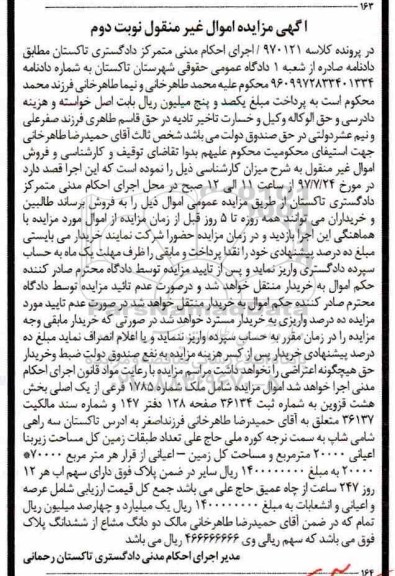 ۱۶۳
آگهی مزایده اموال غیر منقول نوبت دوم
در پرونده کلاسه ۹۷۰۱۲۱ / اجرای احکام مدنی متمرکز دادگستری تاکستان مطابق
دادنامه صادره از شعبه ۱ دادگاه عمومی حقوقی شهرستان تاکستان به شماره دادنامه
۹۶۰۹۹۷۲۸۳۳۴۰۱۳۳۴ محکوم علیه محمد طاهرخانی و نیما طاهرخانی فرزند محمد
محکوم است به پرداخت مبلغ یکصد و پنج میلیون ریال بابت اصل خواسته و هزینه
دادرسی و حق الوکاله وکیل و خسارت تاخیر تادیه در حق قاسم طاهری فرزند صفرعلی
و نیم عشر دولتی در حق صندوق دولت می باشد شخص ثالث آقای حمیدرضا طاهرخانی
جهت استیفای محکومیت محکوم علیهم بدوا تقاضای توقیف و کارشناسی و فروش
اموال غیر منقول به شرح میزان کارشناسی ذیل را نموده است که این اجرا قصد دارد
در مورخ ۹۷/۷/۲۴ از ساعت ۱۱ الی ۱۲ صبح در محل اجرای احکام مدنی متمرکز
دادگستری تاکستان از طریق مزایده عمومی اموال ذیل را به فروش برساند طالبین
و خریداران می توانند همه روزه تا ۵ روز قبل از زمان مزایده از اموال مورد مزایده با
هماهنگی این اجرا بازدید و در زمان مزایده حضورا شرکت نمایند خریدار می بایستی
مبلغ ده درصد پیشنهادی خود را نقدا پرداخت و مابقی را ظرف مهلت یک ماه به حساب
سپرده دادگستری واریز نماید و پس از تایید مزایده توسط دادگاه محترم صادر کننده
حکم اموال به خریدار منتقل خواهد شد و درصورت عدم تائید مزایده توسط دادگاه
محترم صادر کننده حکم اموال به خریدار منتقل نخواهد شد در صورت عدم تایید مورد
مزایده ده درصد واریزی به خریدار مسترد خواهد شد در صورتی که خریدار مابقی وجه
مزایده را در زمان مقرر به حساب سپرده واریز ننماید و یا اعلام انصراف نماید مبلغ ده
درصد پیشنهادی خریدار پس از کسر هزینه مزایده به نفع صندوق دولت ضبط وخریدار
حق هیچگونه اعتراضی را نخواهد داشت مراسم مزایده با رعایت مواد قانون اجرای احکام
مدنی اجرا خواهد شد اموال مزایده شامل شماره ۱۷۸۵ فرعی از یک اصلی بخش
هشت قزوین به شماره ثبت ۳۶۱۳۴ صفحه ۱۲۸ دفتر ۱۴۷ و شماره سند مالکیت
۳۶۱۳۷ متعلق به آقای حمیدرضا طاهرخانی فرزنداصغر به آدرس تاکستان سه راهی
شامی شاپ به سمت نرجه کوره ملی حاج علی تعداد طبقات زمین کل مساحت زیربنا
اعیانی ۲۰۰۰۰ مترمربع و مساحت کل زمین – اعیانی از قرار هر متر مربع ۷۰۰۰۰*
۲۰۰۰۰ به مبلغ ۱۴۰۰۰۰۰۰۰۰ ریال سایر در ضمن پلاک فوق دارای سهم اب هر ۱۲
روز ۲۴۷ ساعت از چاه عمیق حاج علی می باشد جمع کل قیمت ارزیابی شامل عرصه
و اعیانی و انشعابات به مبلغ ۱۴۰۰۰۰۰۰۰۰ ریال یک میلیارد و چهارصد میلیون ریال
تمام که در ضمن آقای حمیدرضا طاهرخانی مالک دو دانگ مشاع از ششدانگ پلاک
فوق می باشد که سهم ریالی وی ۴۶۶۶۶۶۶۶۶ ریال می باشد
مدیر اجرای احکام مدنی دادگستری تاکستان رحمانی
۱۶۴